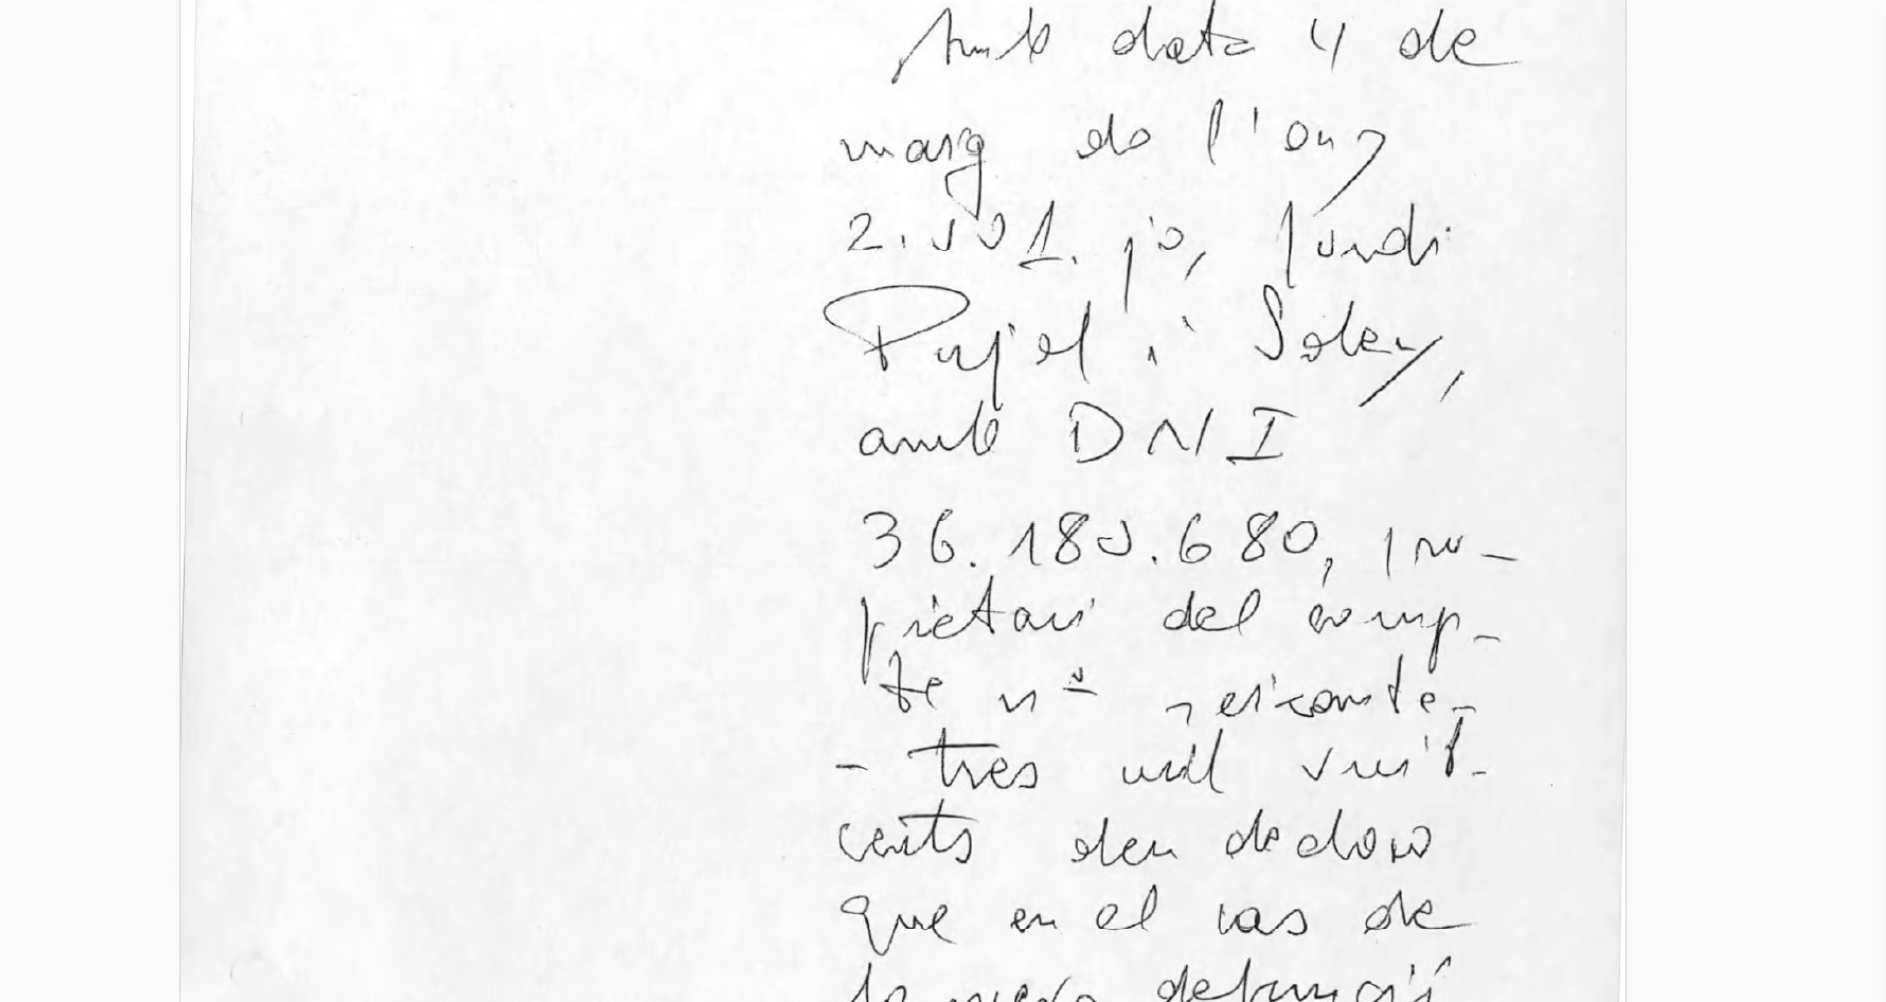 Amb data 4 de
març de l'any
2.001. jo, Jordi
Pujol i Soley,
amb DNI
36.180.680, pro-
pietari del comp-
te nº seixanta-
- tres mil vuit-
cents deu declaro
que en el cas de
la meva defunció